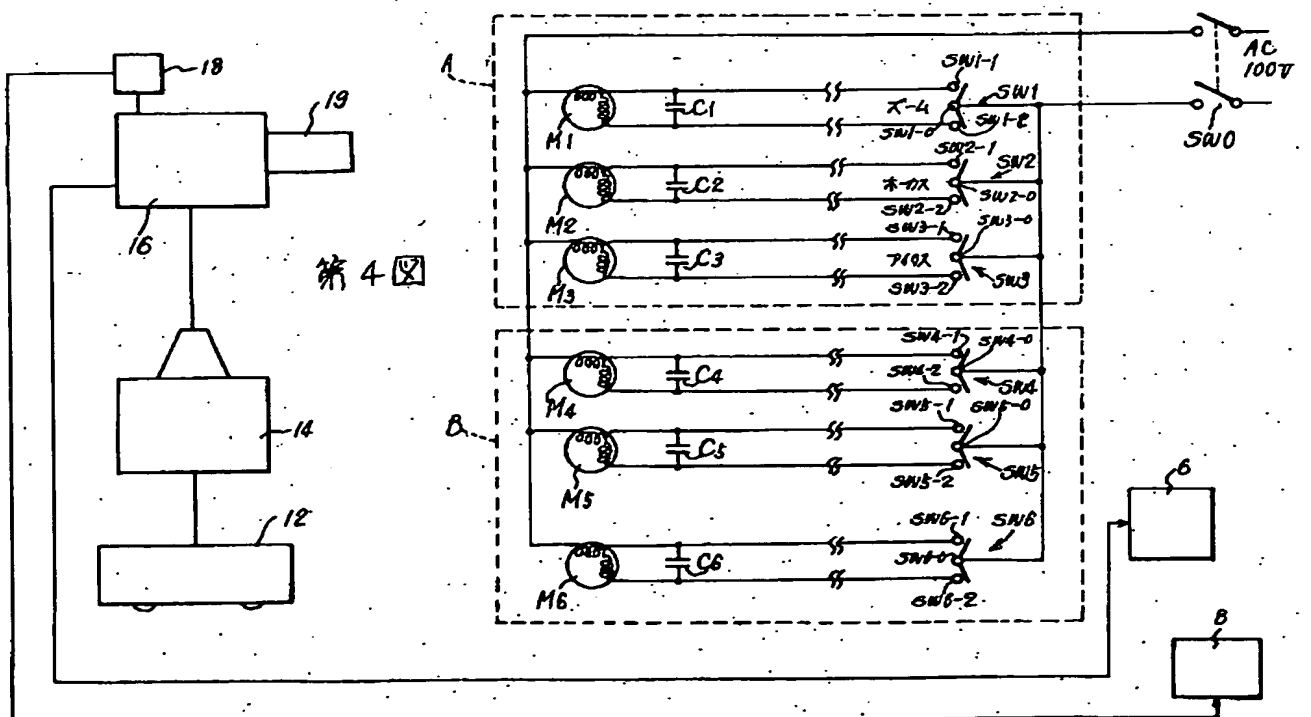 18
19
16
第4図
14
12
A
M1
C1
SW1-1
ズーム
SW1
SW1-0
SW1-2
AC
100V
SW0
M2
C2
SW2-1
ホーカス
SW2
SW2-0
SW2-2
M3
C3
SW3-1
SW3-0
アイリス
SW3-2
SW3
B
M4
C4
SW4-1
SW4-0
SW4-2
SW4
M5
C5
SW5-1
SW5-0
SW5-2
SW5
M6
C6
SW6-1
SW6
SW6-0
SW6-2
6
8